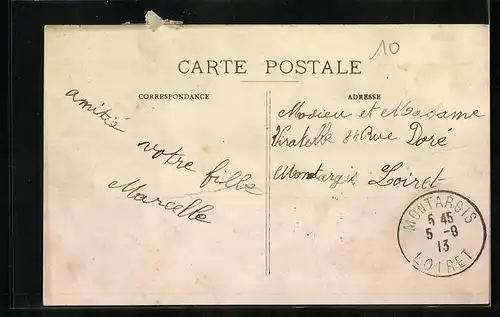 10
CARTE POSTALE
CORRESPONDANCE
amitié
votre fille
Marcelle
ADRESSE
Mosieu et Madame
Viratelle 84 Rue Doré
Montargis Loiret
MONTARGIS
5 45
5 - 9
13
LOIRET